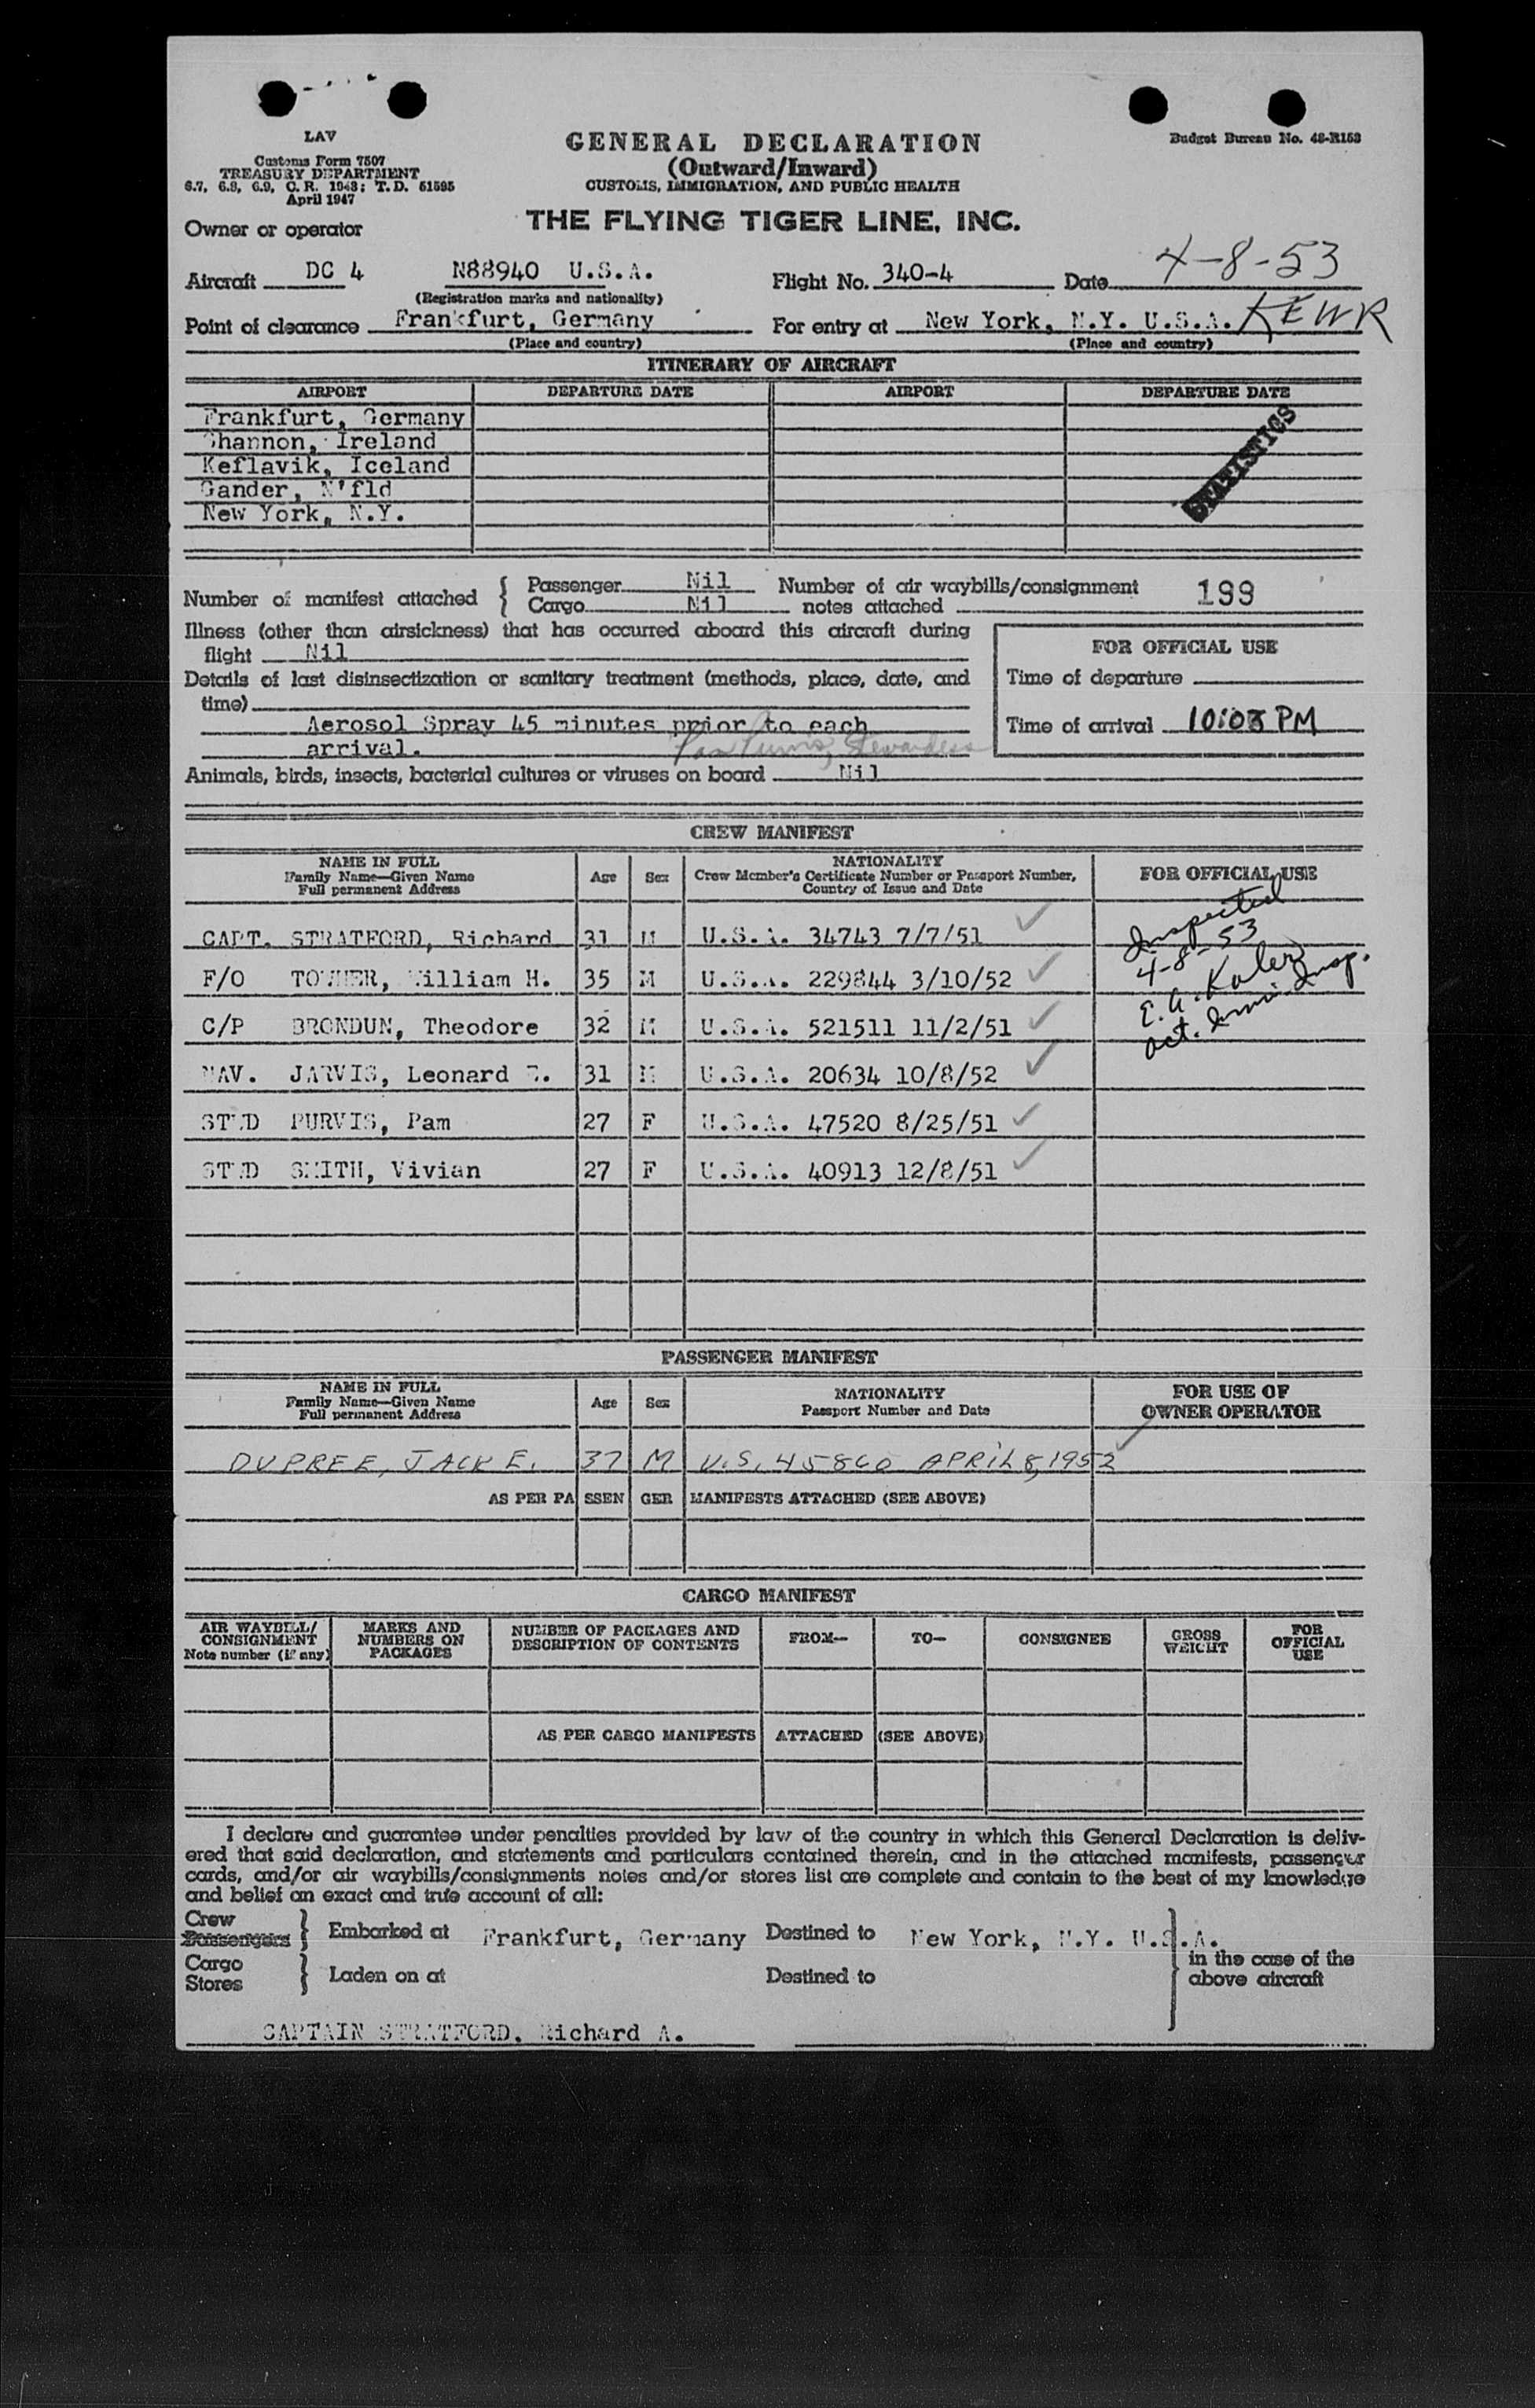 LAV
Customs Form 7507
TREASURY DEPARTMENT
6.7, 6.8, 6.9, C. R. 1943; T. D. 51595
April 1947
GENERAL DECLARATION
(Outward/Inward)
CUSTOMS, IMMIGRATION, AND PUBLIC HEALTH
Budget Bureau No. 48-R153
Owner or operator THE FLYING TIGER LINE, INC.
Aircraft DC 4 N88940 U.S.A. Flight No. 340-4 Date 4-8-53
(Registration marks and nationality)
Point of clearance Frankfurt, Germany For entry at New York, N.Y. U.S.A. KEWR
(Place and country) (Place and country)
ITINERARY OF AIRCRAFT
AIRPORT DEPARTURE DATE AIRPORT DEPARTURE DATE
Frankfurt, Germany
Shannon, Ireland
Keflavik, Iceland
Gander, N'fld
New York, N.Y.
STATISTICS
Number of manifest attached { Passenger Nil Number of air waybills/consignment 199
Cargo Nil notes attached
Illness (other than airsickness) that has occurred aboard this aircraft during
flight Nil
Details of last disinsectization or sanitary treatment (methods, place, date, and
time)
Aerosol Spray 45 minutes prior to each
arrival. Pam Purvis, Stewardess
Animals, birds, insects, bacterial cultures or viruses on board Nil
FOR OFFICIAL USE
Time of departure
Time of arrival PM
CREW MANIFEST
NAME IN FULL
Family Name—Given Name
Full permanent Address
Age Sex
NATIONALITY
Crew Member's Certificate Number or Passport Number,
Country of Issue and Date
FOR OFFICIAL USE
CAPT. STRATFORD, Richard 31 M U.S.A. 34743 7/7/51
F/O William H. 35 M U.S.A. 229844 3/10/52
C/P BRONDUN, Theodore 32 M U.S.A. 521511 11/2/51
NAV. JARVIS, Leonard 31 M U.S.A. 20634 10/8/52
STWD PURVIS, Pam 27 F U.S.A. 47520 8/25/51
STWD SMITH, Vivian 27 F U.S.A. 40913 12/8/51
Inspected
4-8-53
E. A.
Act. Imm. Insp.
PASSENGER MANIFEST
NAME IN FULL
Family Name—Given Name
Full permanent Address
Age Sex
NATIONALITY
Passport Number and Date
FOR USE OF
OWNER OPERATOR
DUPREE, JACK E. 37 M U.S. 45860 APRIL 8, 1952
AS PER PASSENGER MANIFESTS ATTACHED (SEE ABOVE)
CARGO MANIFEST
AIR WAYBILL/
CONSIGNMENT
Note number (if any)
MARKS AND
NUMBERS ON
PACKAGES
NUMBER OF PACKAGES AND
DESCRIPTION OF CONTENTS
FROM— TO— CONSIGNEE
GROSS
WEIGHT
FOR
OFFICIAL
USE
AS PER CARGO MANIFESTS ATTACHED (SEE ABOVE)
I declare and guarantee under penalties provided by law of the country in which this General Declaration is deliv-
ered that said declaration, and statements and particulars contained therein, and in the attached manifests, passenger
cards, and/or air waybills/consignments notes and/or stores list are complete and contain to the best of my knowledge
and belief an exact and true account of all:
Crew
Passengers } Embarked at Frankfurt, Germany Destined to New York, N.Y. U.S.A.
Cargo
Stores } Laden on at Destined to
in the case of the
above aircraft
CAPTAIN STRATFORD, Richard A.